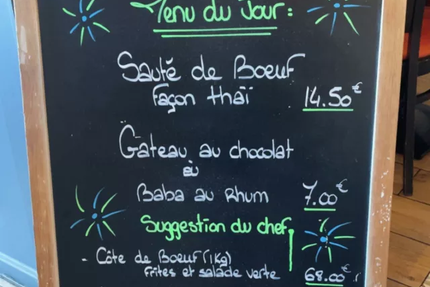 Menu du Jour:
Sauté de Boeuf
façon thaï 14.50€
Gâteau au chocolat
ou
Baba au Rhum 7.00€
Suggestion du chef
- Côte de Boeuf (1kg)
frites et salade verte 68.00€